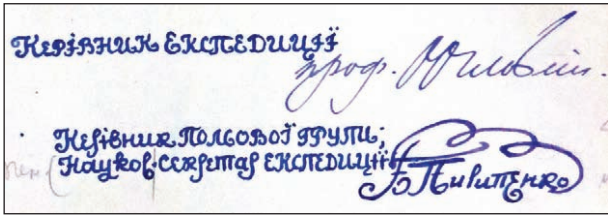 Керівник Експедиції
проф.
Керівник Польової групи,
Науков. секретар Експедиції
Б Пилипенко